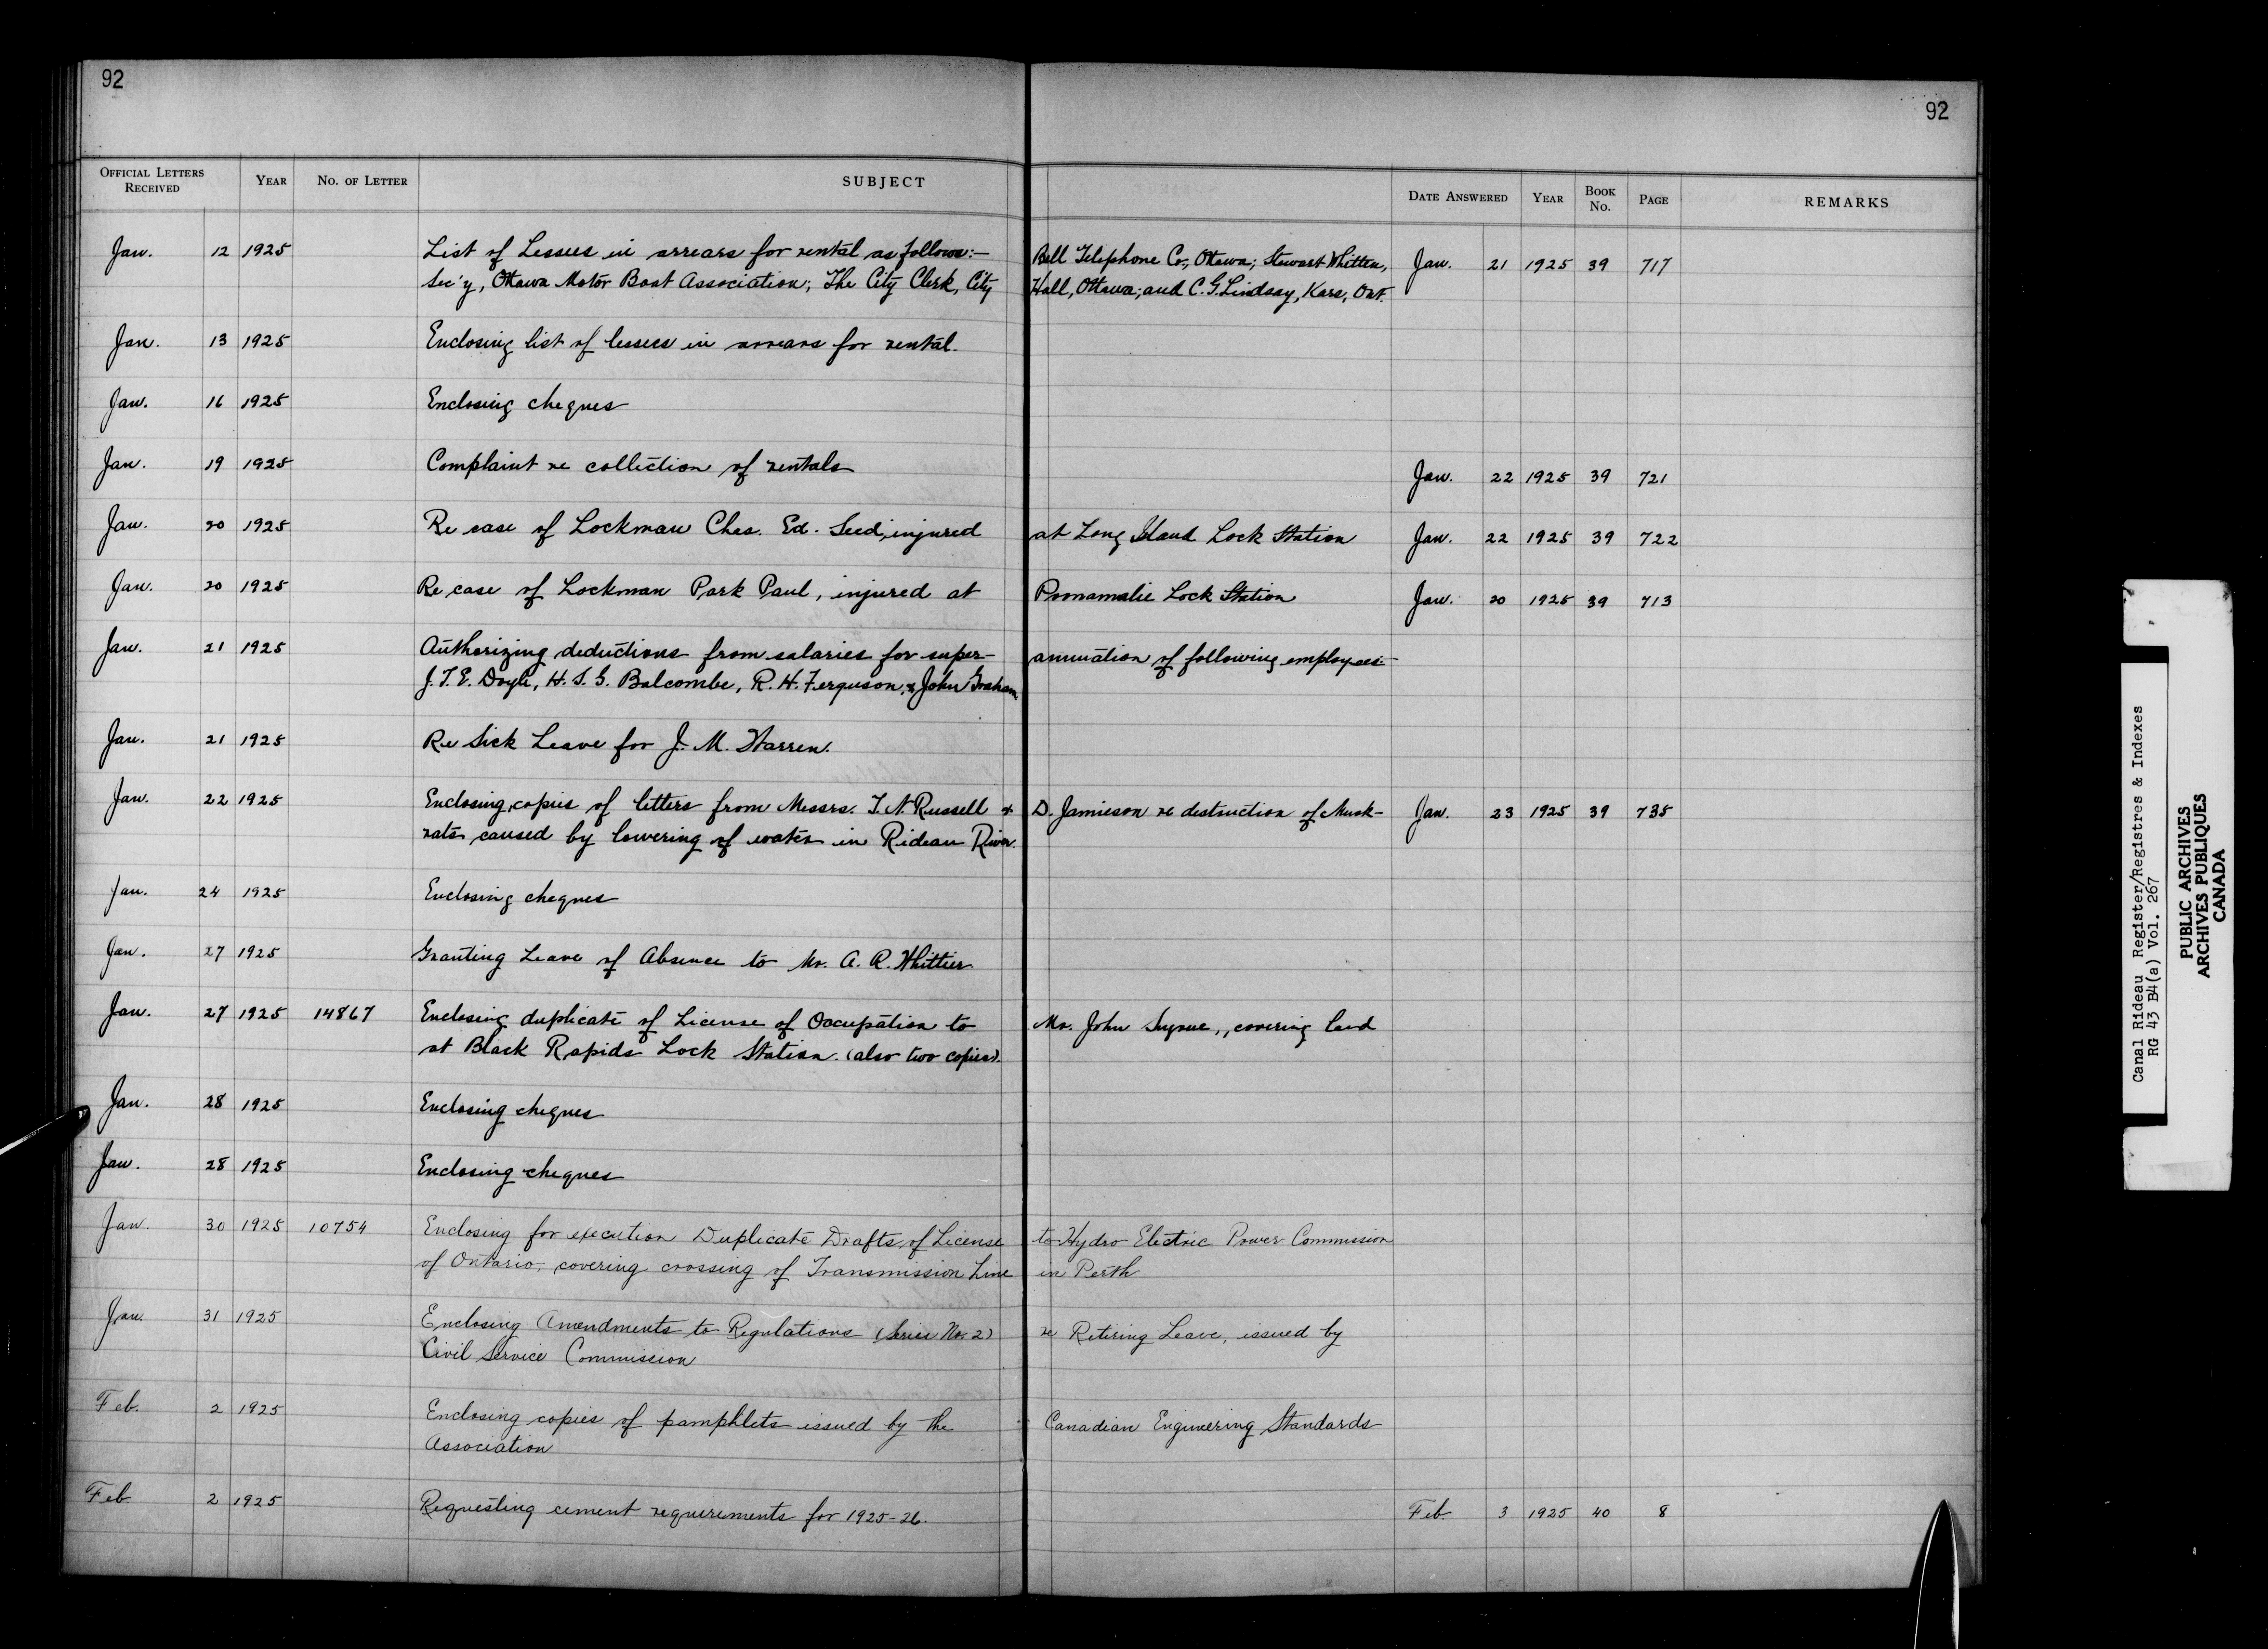 92
92
OFFICIAL LETTERS RECEIVED YEAR NO. OF LETTER SUBJECT DATE ANSWERED YEAR BOOK NO. PAGE REMARKS
Jan. 12 1925 List of Lessees in arrears for rental as follows:- Bell Telephone Co., Ottawa; Stewart Whitten, Jan. 21 1925 39 717
Sec'y, Ottawa Motor Boat Association; The City Clerk, City Hall, Ottawa; and C. G. Lindsay, Kars, Ont.
Jan. 13 1925 Enclosing list of lessees in arrears for rental.
Jan. 16 1925 Enclosing cheques
Jan. 19 1925 Complaint re collection of rentals Jan. 22 1925 39 721
Jan. 20 1925 Re case of Lockman Chas. Ed. Seed, injured at Long Island Lock Station Jan. 22 1925 39 722
Jan. 20 1925 Re case of Lockman Park Paul, injured at Poonamalie Lock Station Jan. 20 1925 39 713
Jan. 21 1925 Authorizing deductions from salaries for super- annuation of following employees:-
J. T. E. Doyle, H. S. G. Balcombe, R. H. Ferguson, & John Graham
Jan. 21 1925 Re Sick Leave for J. M. Warren.
Jan. 22 1925 Enclosing copies of letters from Messrs. T. N. Russell & D. Jamieson re destruction of Musk- Jan. 23 1925 39 735
rats caused by lowering of water in Rideau River.
Jan. 24 1925 Enclosing cheques
Jan. 27 1925 Granting Leave of Absence to Mr. A. R. Whittier
Jan. 27 1925 14867 Enclosing duplicate of License of Occupation to Mr. John , covering land
at Black Rapids Lock Station. (also two copies).
Jan. 28 1925 Enclosing cheques
Jan. 28 1925 Enclosing cheques
Jan. 30 1925 10754 Enclosing for execution Duplicate Drafts of License to Hydro Electric Power Commission
of Ontario, covering crossing of Transmission Line in Perth
Jan. 31 1925 Enclosing Amendments to Regulations (Series No. 2) re Retiring Leave, issued by
Civil Service Commission
Feb. 2 1925 Enclosing copies of pamphlets issued by the Canadian Engineering Standards
Association
Feb. 2 1925 Requesting cement requirements for 1925-26. Feb. 3 1925 40 8
Canal Rideau Register/Registres & Indexes
RG 43 B4(a) Vol. 267
PUBLIC ARCHIVES
ARCHIVES PUBLIQUES
CANADA